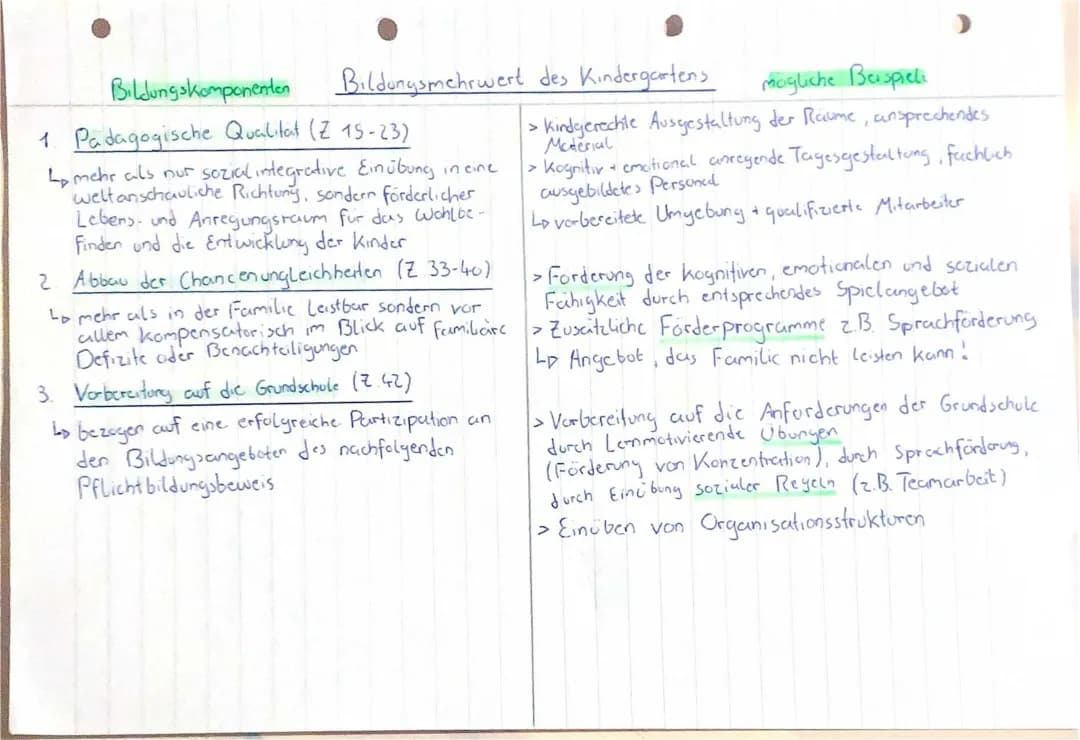 Bildungskomponenten
Bildungsmehrwert des Kindergartens
mögliche Beispiele
1. Pädagogische Qualität (Z 15-23)
↳ mehr als nur sozialintegrative Einübung in eine
weltanschauliche Richtung, sondern förderlicher
Lebens- und Anregungsraum für das Wohlbe-
finden und die Entwicklung der Kinder
2. Abbau der Chancenungleichheiten (Z 33-40)
↳ mehr als in der Familie Leistbar sondern vor
allem kompensatorisch im Blick auf familiäre
Defizite oder Benachteiligungen
3. Vorbereitung auf die Grundschule (Z. 42)
↳ bezogen auf eine erfolgreiche Partizipation an
den Bildungsangeboten des nachfolgenden
Pflichtbildungsbeweis
> Kindgerechte Ausgestaltung der Räume, ansprechendes
Material
> Kognitiv + emotional anregende Tagesgestaltung, fachlich
ausgebildetes Personal
↳ vorbereitete Umgebung + qualifizierte Mitarbeiter
> Förderung der kognitiven, emotionalen und sozialen
Fähigkeit durch entsprechendes Spielangebot
> Zusätzliche Förderprogramme z.B. Sprachförderung
↳ Angebot, das Familie nicht leisten kann!
> Vorbereitung auf die Anforderungen der Grundschule
durch Lernmotivierende Übungen
(Förderung von Konzentration), durch Sprachförderung,
durch Einübung sozialer Regeln (z.B. Teamarbeit)
> Einüben von Organisationsstrukturen